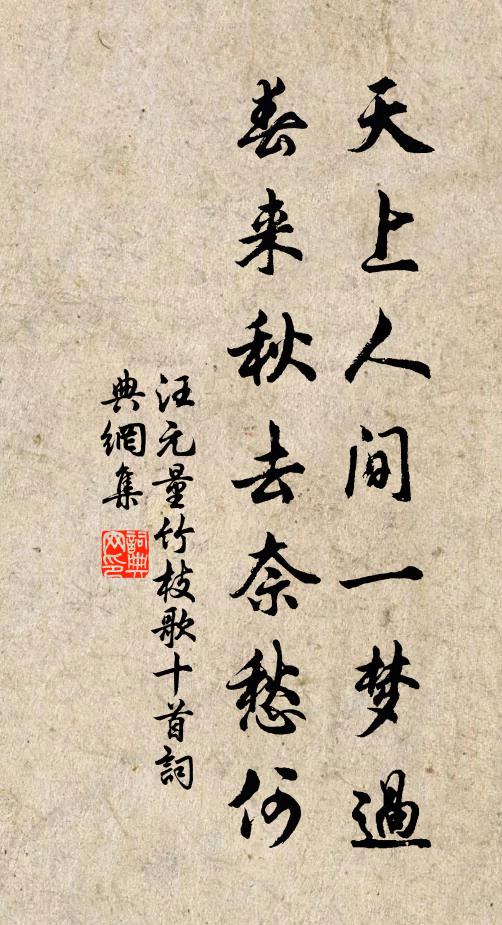 天上人间一梦過
春来秋去奈愁何
汪元量竹枝歌十首詞
典網集
詞典
网印